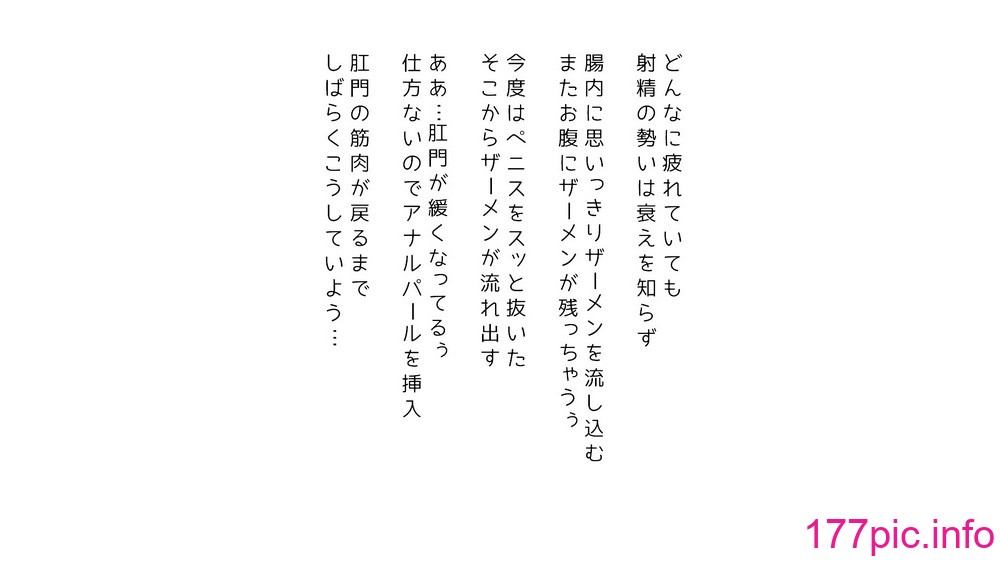 どんなに疲れていても
射精の勢いは衰えを知らず
腸内に思いっきりザーメンを流し込む
またお腹にザーメンが残っちゃうぅ
今度はペニスをスッと抜いた
そこからザーメンが流れ出す
ああ…肛門が緩くなってるぅ
仕方ないのでアナルパールを挿入
肛門の筋肉が戻るまで
しばらくこうしていよう…
177pic.info